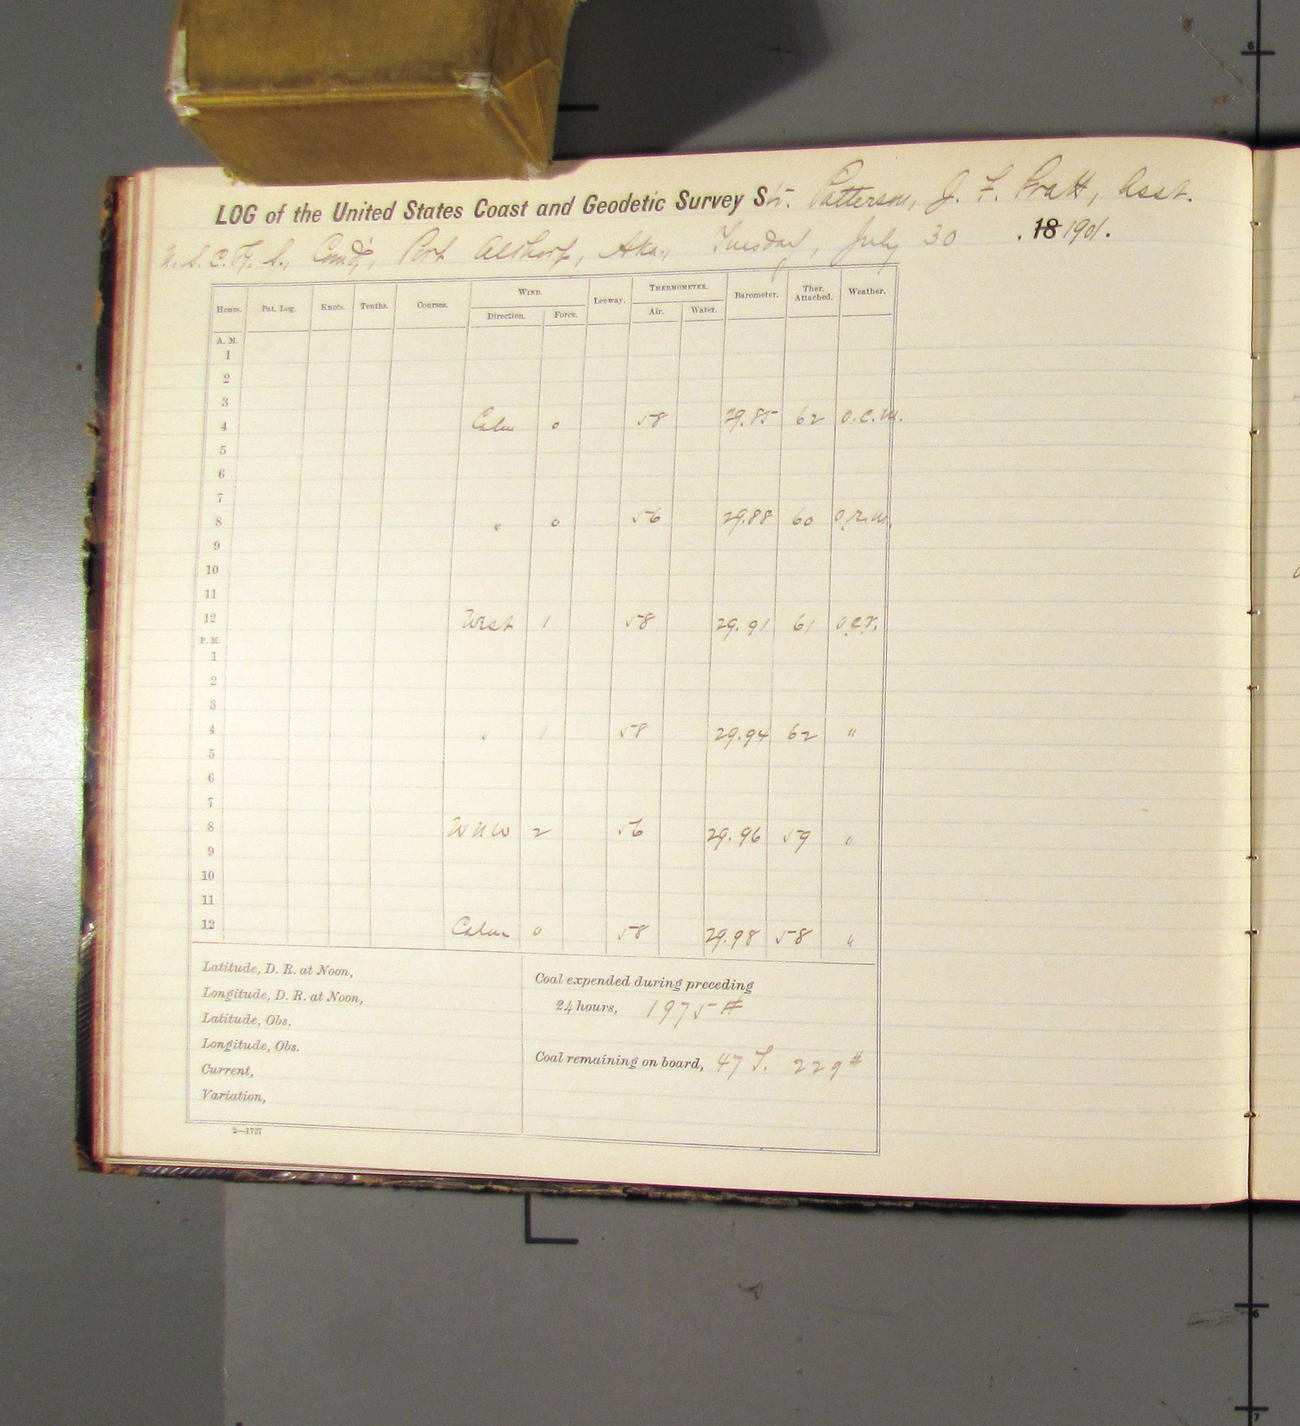 LOG of the United States Coast and Geodetic Survey Str. Patterson, J. F. Pratt, Asst.
U.S.C.&G.S., Comd'g, Port Althorp, Aka., Tuesday, July 30, 18 1901.
Hours. Pat. Log. Knots. Tenths. Courses. WIND. Direction. Force. Leeway. THERMOMETER. Air. Water. Barometer. Ther. Attached. Weather.
A. M.
1
2
3
4 Calm 0 58 29.85 62 o.c.m.
5
6
7
8 " 0 56 29.88 60 o.r.m.
9
10
11
12 West 1 58 29.91 61 o.c.r.
P. M.
1
2
3
4 " 1 58 29.94 62 "
5
6
7
8 WNW 2 56 29.96 59 "
9
10
11
12 Calm 0 58 29.98 58 "
Latitude, D. R. at Noon,
Longitude, D. R. at Noon,
Latitude, Obs.
Longitude, Obs.
Current,
Variation,
Coal expended during preceding
24 hours, 1975 #
Coal remaining on board, 47 T. 229 #
2—1727
6
6
7